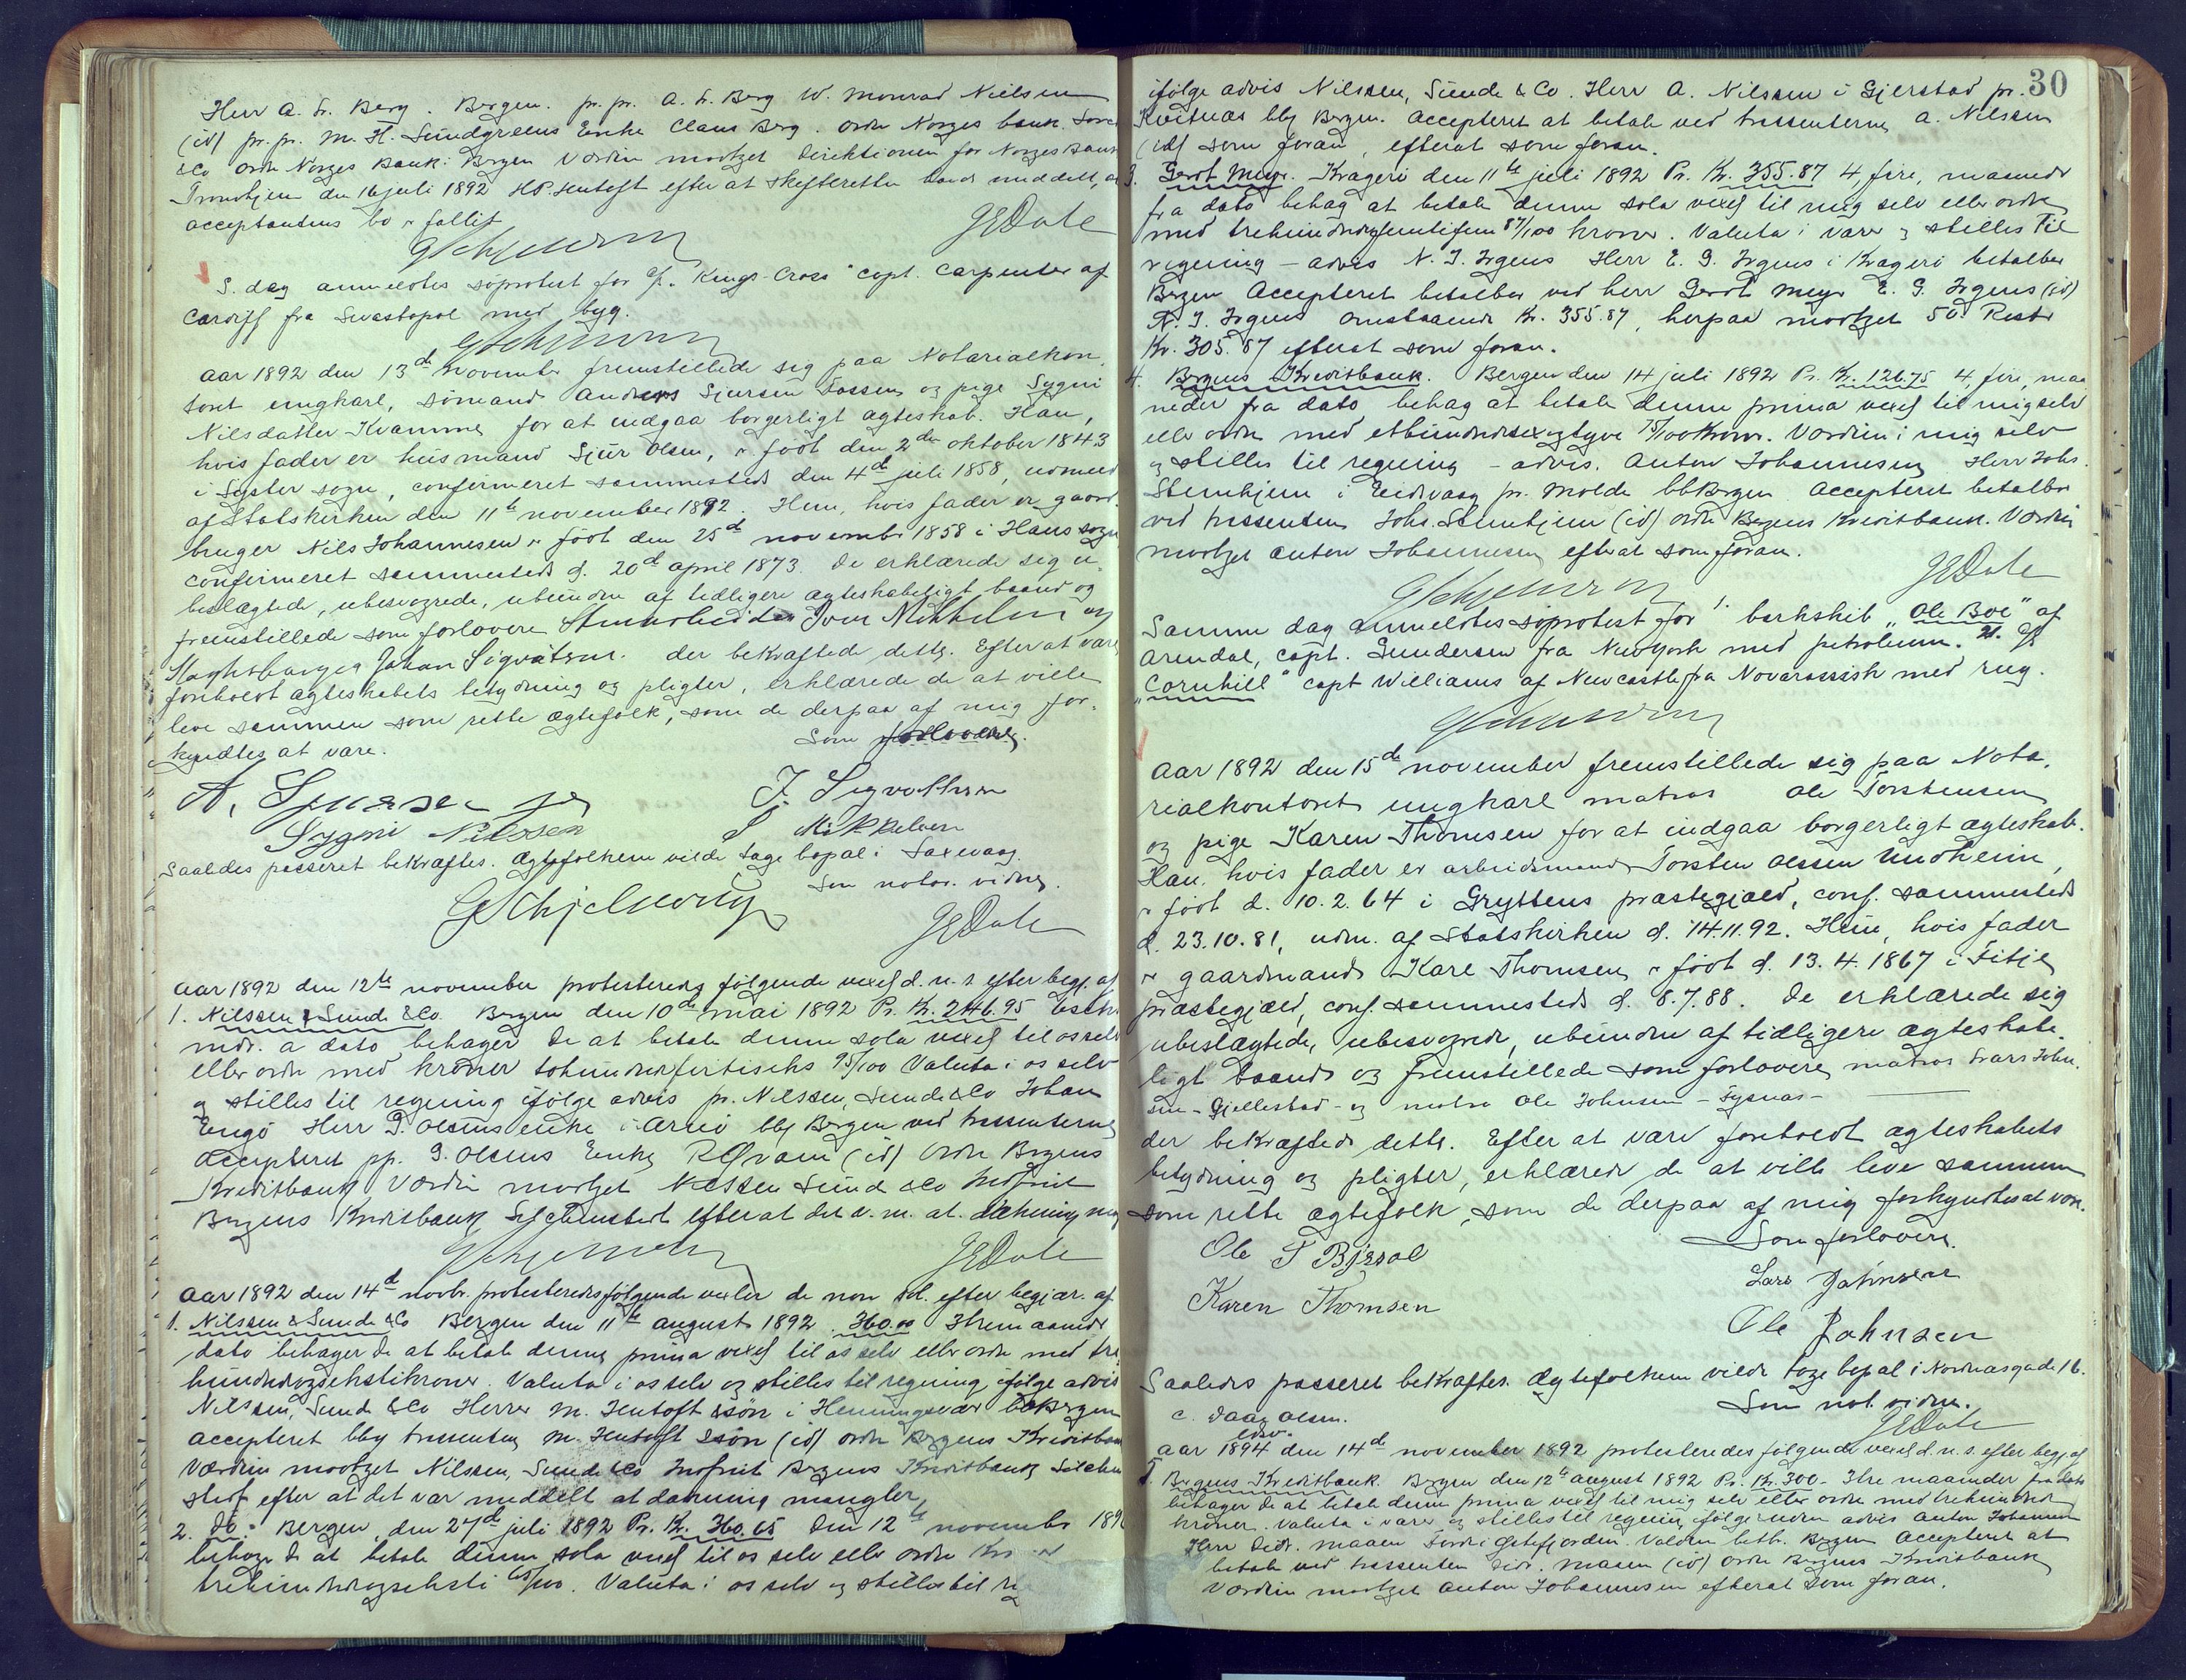 Herr A. Fr. Berg. Bergen. pr. pr. A. Fr. Berg W. Monrad Nielsen
(id) pr. pr. M. H. Lundgreens Enke Claus Berg. ordre Norges bank.
&Co ordre Norges Bank: Bergen Værdien modtaget Direktionen for Norges Bank
Trondhjem den 16 juli 1892 efter at skifteretten havde meddelt, at
acceptantens bo er fallit
GSchjelderup JEDale
S. dag anmeldtes søprotest for "Kings-Cross" capt. Carpenter af
Cardiff fra Sevastopol med byg.
GSchjelderup
Aar 1892 den 13de November fremstillede sig paa Notarialkon,
toret ungkarl, sömand Anders Sjursen Fossen og pige Sygni
Nilsdatter Kvamme for at indgaa borgerligt ægteskab. Han,
hvis fader er husmand Sjur Olsen, er født den 2den oktober 1843
i Lyster sogn, confirmeret sammesteds den 4de juli 1858, udmeldt
af Statskirken den 11te november 1892. Hun, hvis fader er gaard
bruger Nils Johannesen er født den 25de november 1858 i Haus sogn
confirmeret sammesteds d. 20de april 1873. De erklærede sig u,
beslægtede, ubesvogrede, ubundne af tidligere ægteskabeligt baand og
fremstillede som forlovere Iver Mikkelsen og
Johan Sigvatsen. der bekræftede dette. Efter at være
foreholdt ægteskabets betydning og pligter, erklærede de at ville
leve sammen som rette ægtefolk, som de derpaa af mig for-
kyndtes at være. Som forlovere.
A. Sjursen J. Sigvattsen
Sygni Nilssen I Mikkelsen
Saaledes passeret bekræftes. Ægtefolkene vilde tage bopæl i Laxevaag.
Som notar. vidne.
GSchjelderup JEDale
Aar 1892 den 12te november protesteredes følgende vexel d. n. s. efter begj. af
1. Nilssen, Sunde &Co. Bergen den 10de mai 1892 Pr. Kr. 246.95 6seks
mdr. a dato behager De at betale denne sola vexel til os selv
eller ordre med kroner tohundredefirtiseks 95/100 Valuta i os selv
og stilles til regning ifølge advis pr. Nilssen, Sunde &Co Johan
Engø Herr G. Olsens enke i Arnø bbg Bergen ved trassenterne
Accepteret pp. G. Olsens Enke (id) Ordre Bergens
Kreditbank, Værdien modtaget Nilssen Sunde &Co Indfriet
Bergens Kreditbank efter at det v. m. at dækning mgl
GSchjelderup JEDale
Aar 1892 den 14de novbr. protesteredes følgende vexler de non sol. efter begjær. af
1. Nilssen & Sunde &Co Bergen den 11te august 1892. 360.00 3tremaaneder
dato behager De at betale denne prima vexel til os selv eller ordre med tre
hundredeogsekstikroner. Valuta i os selv og stilles til regning ifølge advis
Nilssen, Sunde &Co Herrer M. Hentoft &søn i Henningsvær bbBergen
accepteret bbg trassenten M. Hentoft &søn (id) ordre Bergens Kreditbank
Værdien modtaget Nilssen, Sunde &Co Indfriet Bergens Kreditbank
efter at det var meddelt at dækning mangler,
2. do. Bergen, den 27de juli 1892 Pr. Kr. 360.65 Den 12te november 189
behager De at betale denne sola vexel til os selv eller ordre
trehundredeogseksti 65/100. Valuta i os selv og stilles til
30
ifølge advis Nilssen, Sunde & Co. Herr A. Nilssen i Gjerstad pr.
Kvitnæs bbg Bergen. Accepteret at betale ved trassenterne A. Nilssen
(id) som foran, efterat som foran.
3. Gerdt Meyer. Kragerø den 11te juli 1892 Pr. Kr. 355.87 4, fire, maaneder
fra dato behag at betale denne sola vexel til mig selv eller ordre
med trehundredefemtifem 87/100 kroner. Valuta i varer og stilles til
regning - advis N. J. Irgens Herr E. G. Irgens i Kragerø betalbar
Bergen Accepteret betalbar ved herr Gerdt Meyer E. G. Irgens (id)
N. J. Irgens Omstaaende Kr. 355.87, herpaa modtaget 50. Rest
Kr. 305.87 efterat som foran.
4. Bergens Kreditbank. Bergen den 14 juli 1892 Pr. Kr. 126.75 4, fire, maa
neder fra dato behag at betale denne prima vexel til mig selv
eller ordre med ethundredesexogtyve 75/100 Kroner. Værdien i mig selv
og stilles til regning - advis. Anton Johannesen Herr Johs.
Stenhjem i Eidsvaag pr. Molde bbBergen Accepteret betalbar
ved trassenten Johs. Stenhjem (id) ordre Bergens Kreditbank. Værdien
modtaget Anton Johannesen efterat som foran.
GSchjelderup JEDale
Samme dag anmeldtes søprotest for 1. barkskib "Ole Boe" af
Arendal, capt. Gundersen fra NewYork med petroleum. 2.
"Cornhill" capt Williams af Newcastle fra Novorossisk med rug.
GSchjelderup
Aar 1892 den 15de november fremstillede sig paa Nota,
rialkontoret ungkarl matros Ole Torstensen
og pige Karen Thomsen for at indgaa borgerligt ægteskab.
Han. hvis fader er arbeidsmand Torsten Olssen Undheim,
er født d. 10.2.64 i Gryttens præstegjæld, conf. sammesteds
d. 23.10.81, udm. af Statskirken d. 14.11.92. Hun, hvis fader
er gaardmand Kare Thomsen er født d. 13.4.1867 i Fitje
præstegjæld, conf. sammesteds d. 8.7.88. De erklærede sig
ubeslægtede, ubesvogrede, ubundne af tidligere ægteskabe,
ligt baand og fremstillede som forlovere matros Lars John,
sen - Gjellestad - og matros Ole Johnsen - Tysnæs -
der bekræftede dette. Efter at være foreholdt ægteskabets
betydning og pligter, erklærede de at ville leve sammen
som rette ægtefolk, som de derpaa af mig forkyndtes at være.
Som forlovere.
Ole T
Lars Johnsen
Karen Thomsen
Ole Johnsen
Saaledes passeret bekræftes. Ægtefolkene vilde tage bopæl i Nordnæsgade 16.
Som not. vidne.
C. Daae Olsen. JEDale
edsv.
Aar 1894 den 14de november 1892 protesteredes følgende vexel d. n. s. efter begj. af
5. Bergens Kreditbank. Bergen den 12te august 1892 Pr. Kr. 300- 3tre maaneder fra dato
behager De at betale denne prima vexel til mig selv eller ordre med trehundrede
kroner. Valuta i varer og stilles til regning ifølge uden advis Anton Johannesen
Herr Didr. Maaen Førde betb. Bergen Accepteret at
betale ved trassenten Didr. Maaen (id) ordre Bergens Kreditbank
Værdien modtaget Anton Johannesen efterat som foran.